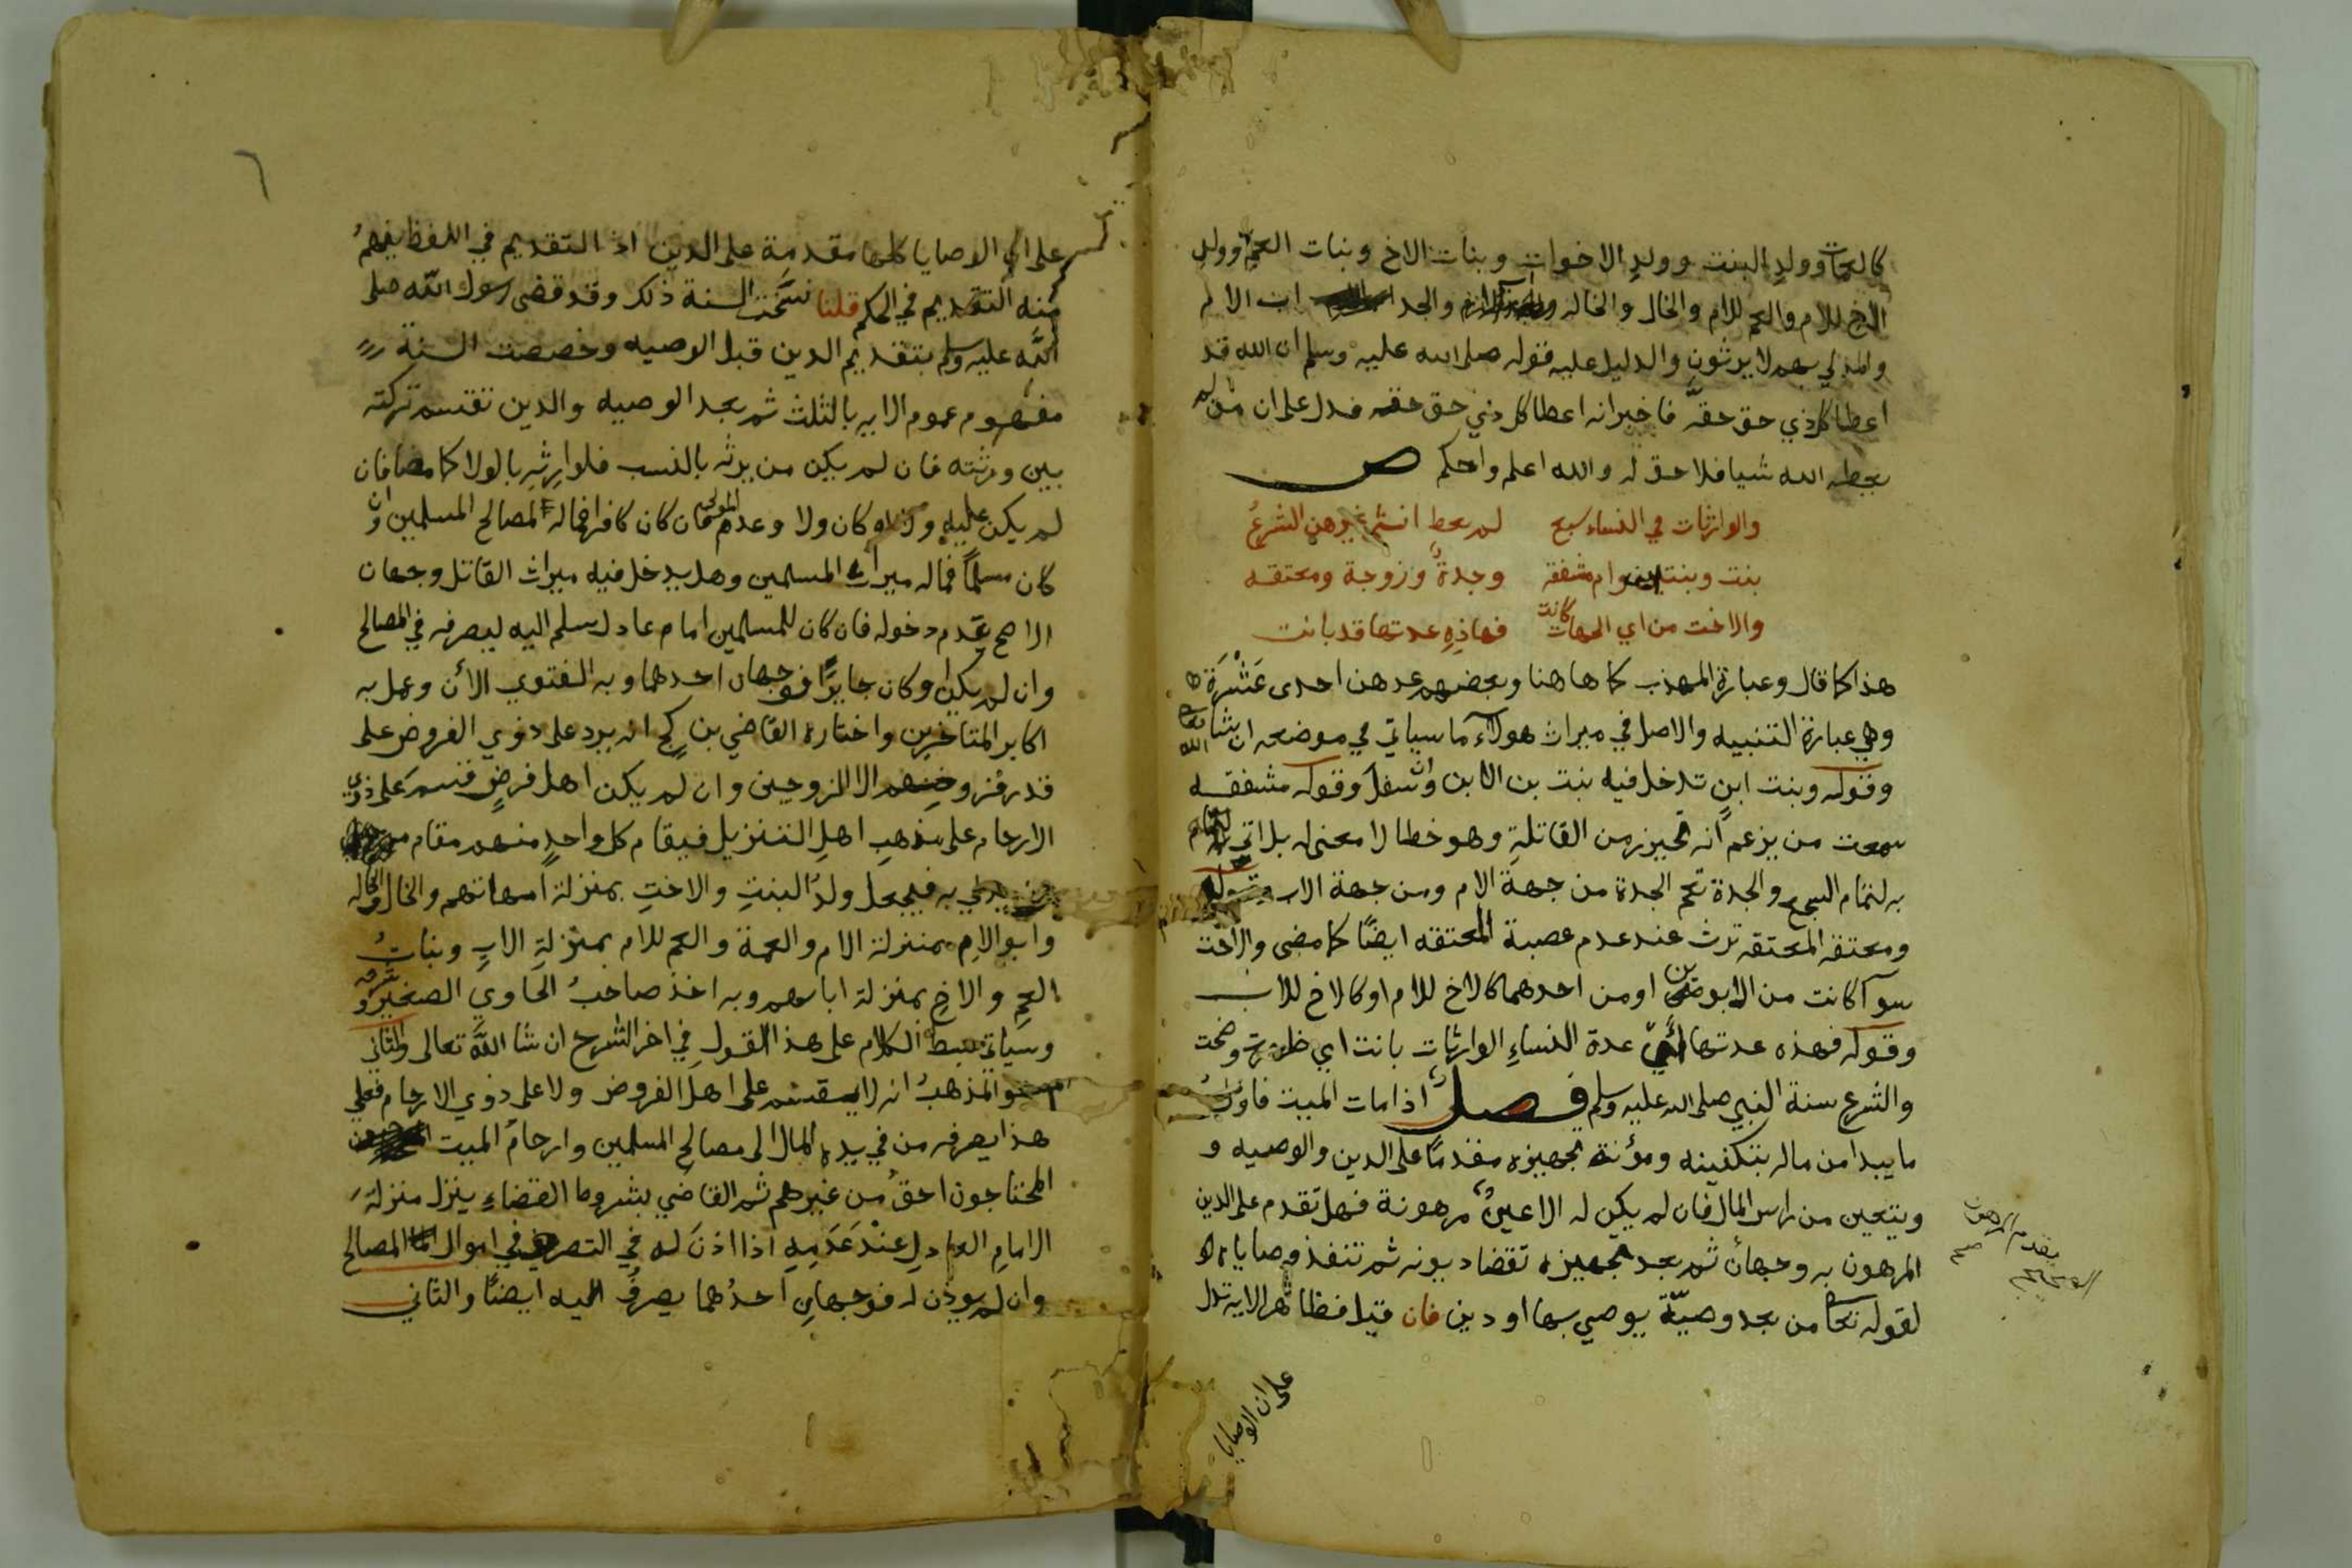 كالعمات وولد البنت وولد الاخوات وبنات الاخ وبنات العم وولد
الاخ للام والعم للام والخال والخاله والجد اب الام
والمدلي بهم لا يرثون والدليل عليه قوله صلى الله عليه وسلم ان الله قد
اعطا كل ذي حق حقه فاخبر انه اعطا كل ذي حق حقه فدل على ان من لم
يعطه الله شيا فلا حق له والله اعلم واحكم ص
والوارثات في النساء سبع لم يعط انثى غيرهن الشرع
بنت وبنت ابن وام مشفقه وجدة وزوجة ومعتقه
والاخت من اي الجهات كانت فهاذه عدتها قد بانت
هذا كما قال وعبارة المهذب كما هاهنا وبعضهم عدهن احدى عشرة
وهي عبارة التنبيه والاصل في ميراث هولاء ما سياتي في موضعه ان شا الله تعالى
وقوله وبنت ابن تدخل فيه بنت بن الابن وان سفل وقوله مشفقه
سمعت من يزعم انه تحيز من القاتلة وهو خطا لا معنى له بل اتى
به لتمام السجع والجدة تعم الجدة من جهة الام ومن جهة الاب وقوله
ومعتقه المعتقه ترث عند عدم عصبة المعتقه ايضا كما مضى والاخت
سوآ كانت من الابوين او من احدهما كالاخ للام او كالاخ للاب
وقوله فهذه عدتها اي عدة النساء الوارثات بانت اي ظهرت وضحت
والشرع سنة النبي صلى الله عليه وسلم فصل اذا مات الميت فاول
ما يبدا من ماله بتكفينه ومؤنة تجهيزه مقدما على الدين والوصيه و
ويتعين من راس المال فان لم يكن له الا عين مرهونة فهل تقدم على الدين
المرهون به وجهان ثم بعد تجهيزه تقضا ديونه ثم تنفذ وصاياه
لقوله تعالى من بعد وصية يوصي بها او دين فان قيل فظاهر الايه تدل
يقدم المرهون
على ان الوصايا
٦
على ان الوصايا كلها مقدمة على الدين اذ التقديم في اللفظ يفهم
منه التقديم في الحكم قلنا نسخت السنة ذلك وقد قضى رسول الله صلى
الله عليه وسلم بتقديم الدين قبل الوصيه وخصصت السنة
مفهوم عموم الايه بالثلث ثم بعد الوصيه والدين تقتسم تركته
بين ورثته فان لم يكن من يرثه بالنسب فلوارثه بالولا كما مضا فان
لم يكن عليه ولا وعدم المولى فان كان كافرا فماله لمصالح المسلمين وان
كان مسلما فماله ميراث المسلمين وهل يدخل فيه ميراث القاتل وجهان
الاصح عدم دخوله فان كان للمسلمين امام عادل سلم اليه ليصرفه في المصالح
وان لم يكن او كان جايرا فوجهان احدهما وبه الفتوى الأن وعمل به
اكابر المتاخرين واختاره القاضي بن كج انه يرد على ذوي الفروض على
قدر فروضهم الا الزوجين وان لم يكن اهل فرض قسم على ذوي
الارحام على مذهب اهل التنزيل فيقام كل واحد منهم مقام
من يدلي به فيجعل ولد البنت والاخت بمنزلة امهاتهم والخال والخاله
وابو الام بمنزلة الام والعمة والعم للام بمنزلة الاب وبنات
العم والاخ بمنزلة اباسهم وبه اخذ صاحب الحاوي الصغير
وسياتي بسط الكلام على هذا القول في اخر الشرح ان شا الله تعالى والثاني
وهو المذهب انه لا يقسم على اهل الفروض ولا على ذوي الارحام فعلى
هذا يصرفه من في يده المال الى مصالح المسلمين وارحام الميت
المحتاجون احق من غيرهم ثم القاضي بشروط القضاء ينزل منزلة
الامام العادل عند عدمه اذا اذن له في التصرف في اموال المصالح
وان لم يوذن له فوجهان احدهما يصرف اليه ايضا والثاني